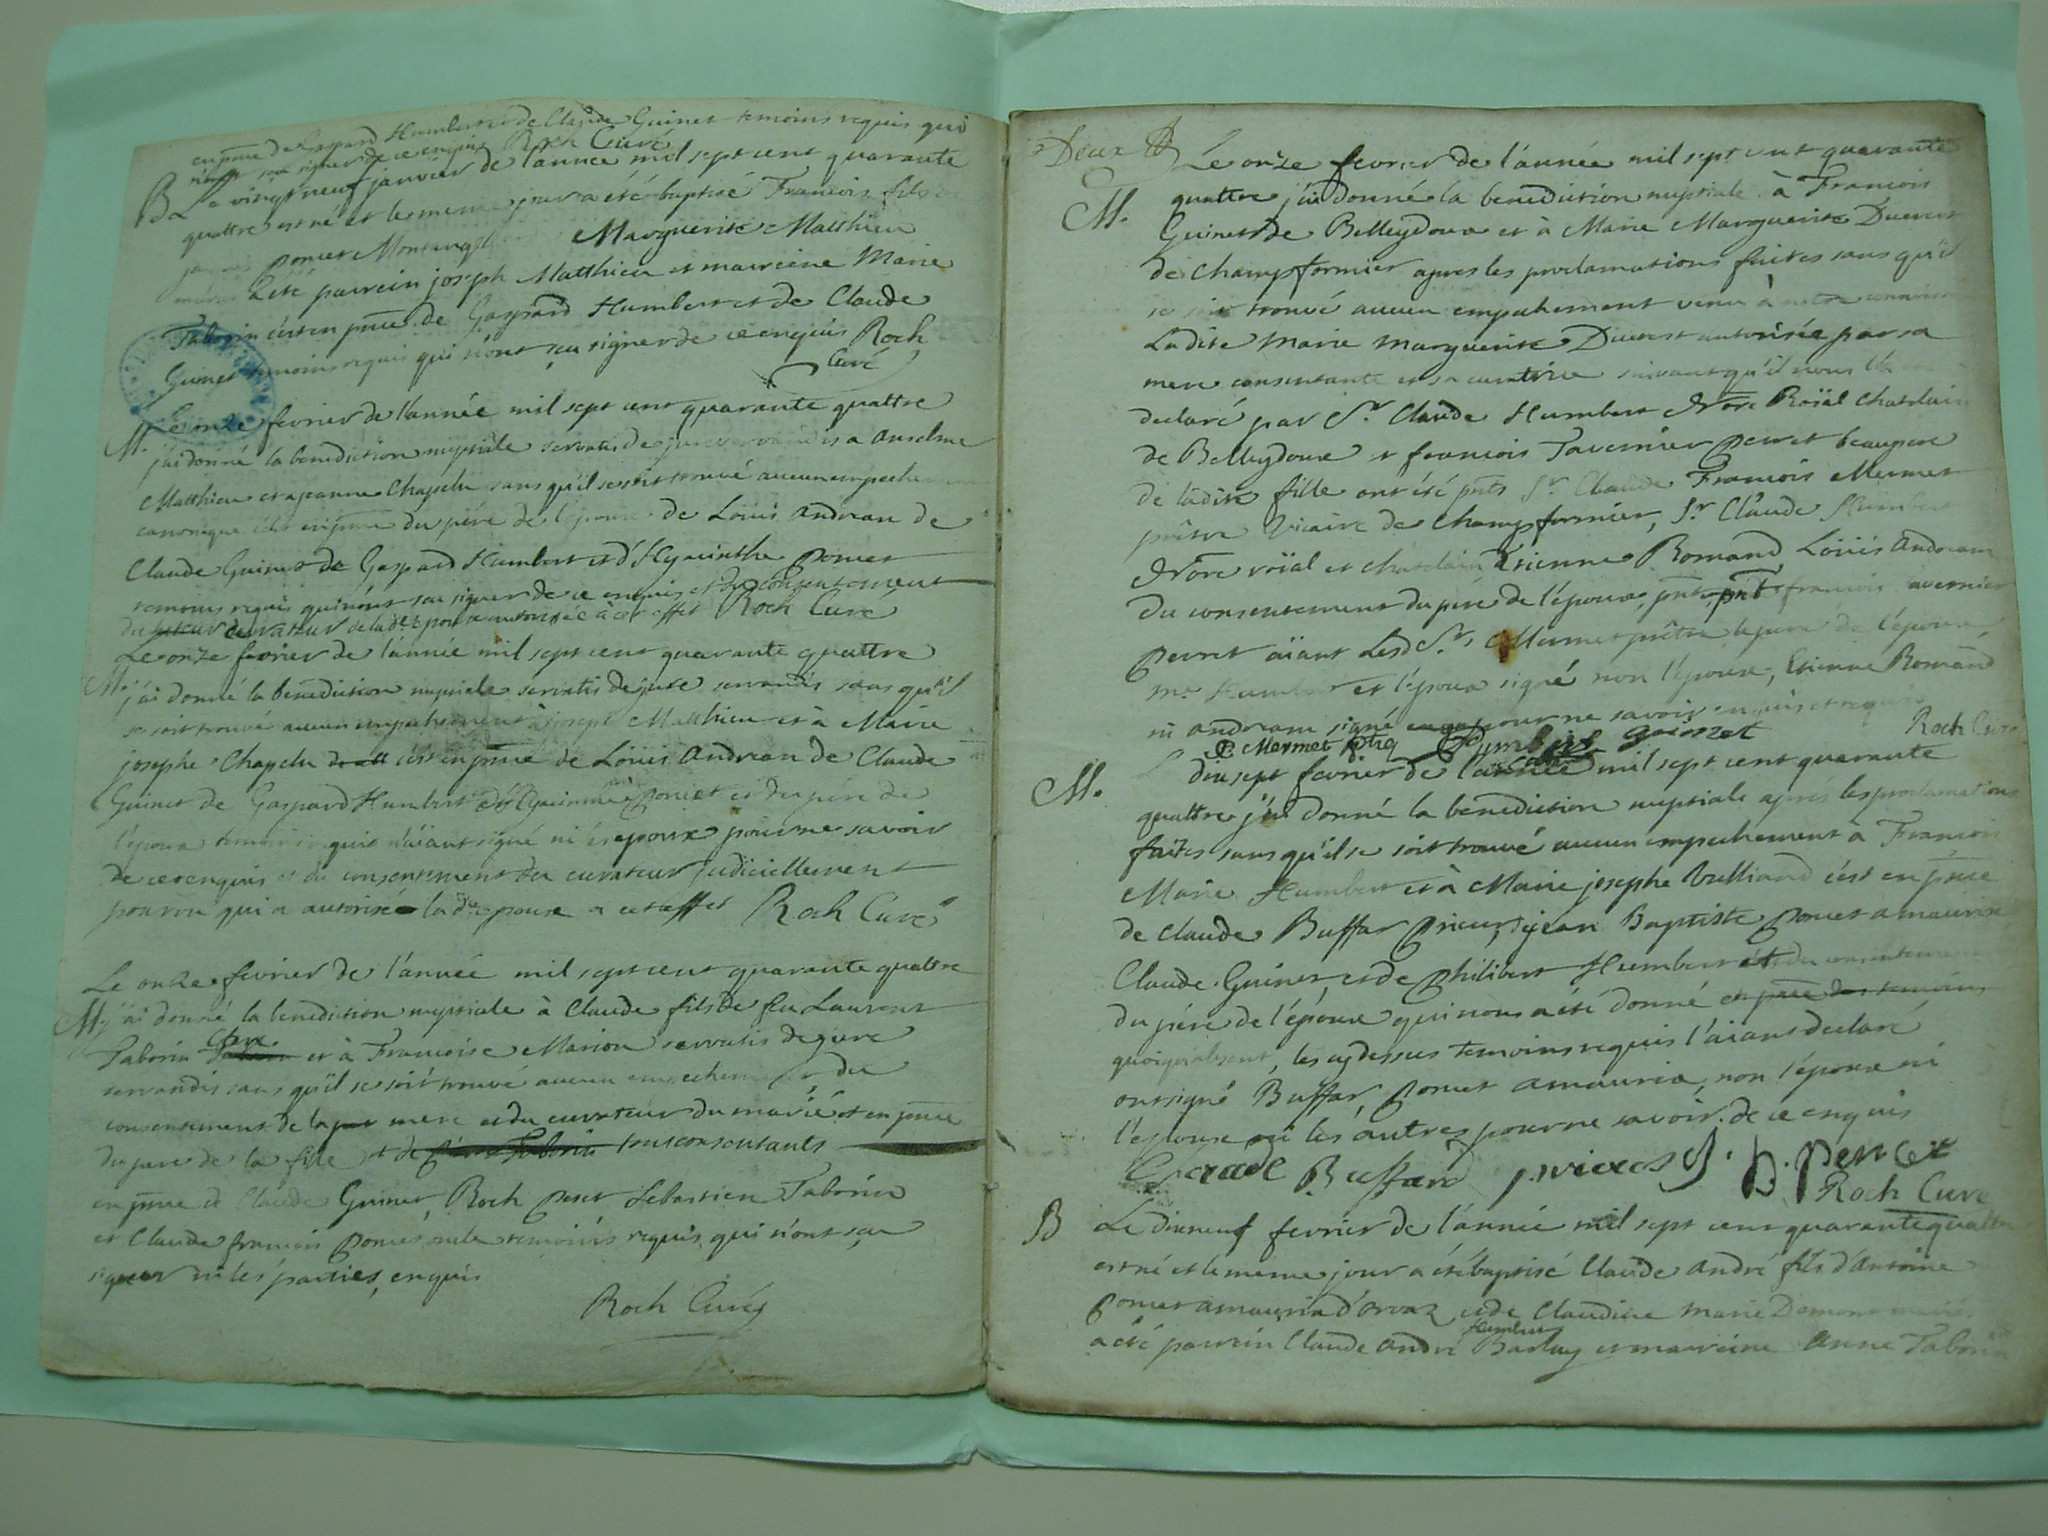 en pñce de Gaspard Humbert et de Claude Guinet temoins requis qui
n'ont sçu signer de ce enquis Roch Curé
B Le vingt neuf janvier de l'année mil sept cent quarante
quattre est né et le meme jour a été baptisé Francois fils
poncet Montange Marguerite Matthieu
a été parrein joseph Matthieu et marreine Marie
Taborin c'est en pñce de Gaspard Humbert et de Claude
Guinet temoins requis qui n'ont sçu signer de ce enquis Roch
Curé
M. Le onze fevrier de l'année mil sept cent quarante quattre
j'ai donné la benediction nuptiale servatis de jure servandis a Anselme
Matthieu et a jeanne Chapelu sans qu'il se soit trouvé aucun empechement
canonique c'est en pñce du pére de l'epoux de Loüis Andrean de
Claude Guinet de Gaspard Humbert et d'Hyacinthe poncet
temoins requis qui n'ont sçu signer de ce enquis et du consentement
du curateur de lad.e epouse autorisée à cet effet Roch Curé
Le onze fevrier de l'année mil sept cent quarante quattre
M. j'ai donné la benediction nuptiale servatis de jure servandis sans qu'il
se soit trouvé aucun empechement à joseph Matthieu et à Marie
josephe Chapelu c'est en pñce de Loüis Andrean de Claude
Guinet de Gaspard Humbert d'Hyacinthe poncet et du pére de
l'epoux temoins requis n'aiant signé ni les epoux pour ne savoir
de ce enquis et du consentement du curateur judiciellement
pourvu qui a autorisé la d.e epouse a cet effet Roch Curé
Le onze fevrier de l'année mil sept cent quarante quattre
M. j'ai donné la benediction nuptiale à Claude fils de feu Laurent
Taborin et à Francoise Marion servatis de jure
servandis sans qu'il se soit trouvé aucun empechement du
consentement de la mere et du curateur du marié et en pñce
du pere de la fille et de tous consentants
en pñce de Claude Guinet, Roch Perret Sebastien Taborin
et Claude francois poncet temoins requis qui n'ont sçu
signer ni les parties, enquis
Roch Curé
Deux
Le onze fevrier de l'année mil sept cent quarante
M. quattre j'ai donné la benediction nuptiale à Francois
Guinet de Belleydoux et à Marie Marguerite Ducret
de Champformier apres les proclamations faites sans qu'il
se soit trouvé aucun empechement venu à notre connoissance
Ladite Marie Marguerite Ducret autorisée par sa
mere consentante et sa curatrice suivant qu'il nous l'a
declaré par S.r Claude Humbert Nore Roïal Chatelain
de Belleydoux et francois Tavernier perret beaupere
de ladite fille ont été pñts S.r Claude Francois Mermet
prêtre Vicaire de Champformier, S.r Claude Humbert
Nore roïal et chatelain Etienne Romand, Loüis Andrean
du consentement du pere de l'époux, pñt, francois Tavernier
perret aïant Lesd S.rs Mermet prêtre le pere de l'époux
M.e Humbert et l'époux signé non l'épouse, Etienne Romand
ni Andrean signé pour ne savoir enquis et requis
C Mermet ptre Humbert guinet Roch Curé
M. Le dix sept fevrier de l'année mil sept cent quarante
quattre j'ai donné la benediction nuptiale aprés les proclamations
faites sans qu'il se soit trouvé aucun empechement à Francois
Marie Humbert et à Marie josephe Vulliand c'est en pñce
de Claude Buffar Prieur, jean Baptiste poncet amauria
Claude Guinet, et de Philibert Humbert et du consentement
du pére de l'époux qui nous a été donné et pñce des temoins
quoiqu'absent, les cy dessus temoins requis l'aïant declaré
ont signé Buffar, poncet amauria, non l'époux ni
l'epouse ni les autres pour ne savoir de ce enquis
Claude Buffard prieur J. b. poncet
Roch Curé
B Le dix neuf fevrier de l'année mil sept cent quarante quattre
est né et le meme jour a été baptisé Claude André fils d'Antoine
poncet amauria d'orvaz et de Claudine Marie Demont mariés
Humbert
a été parrein Claude André Barlay et marreine Anne Taborin